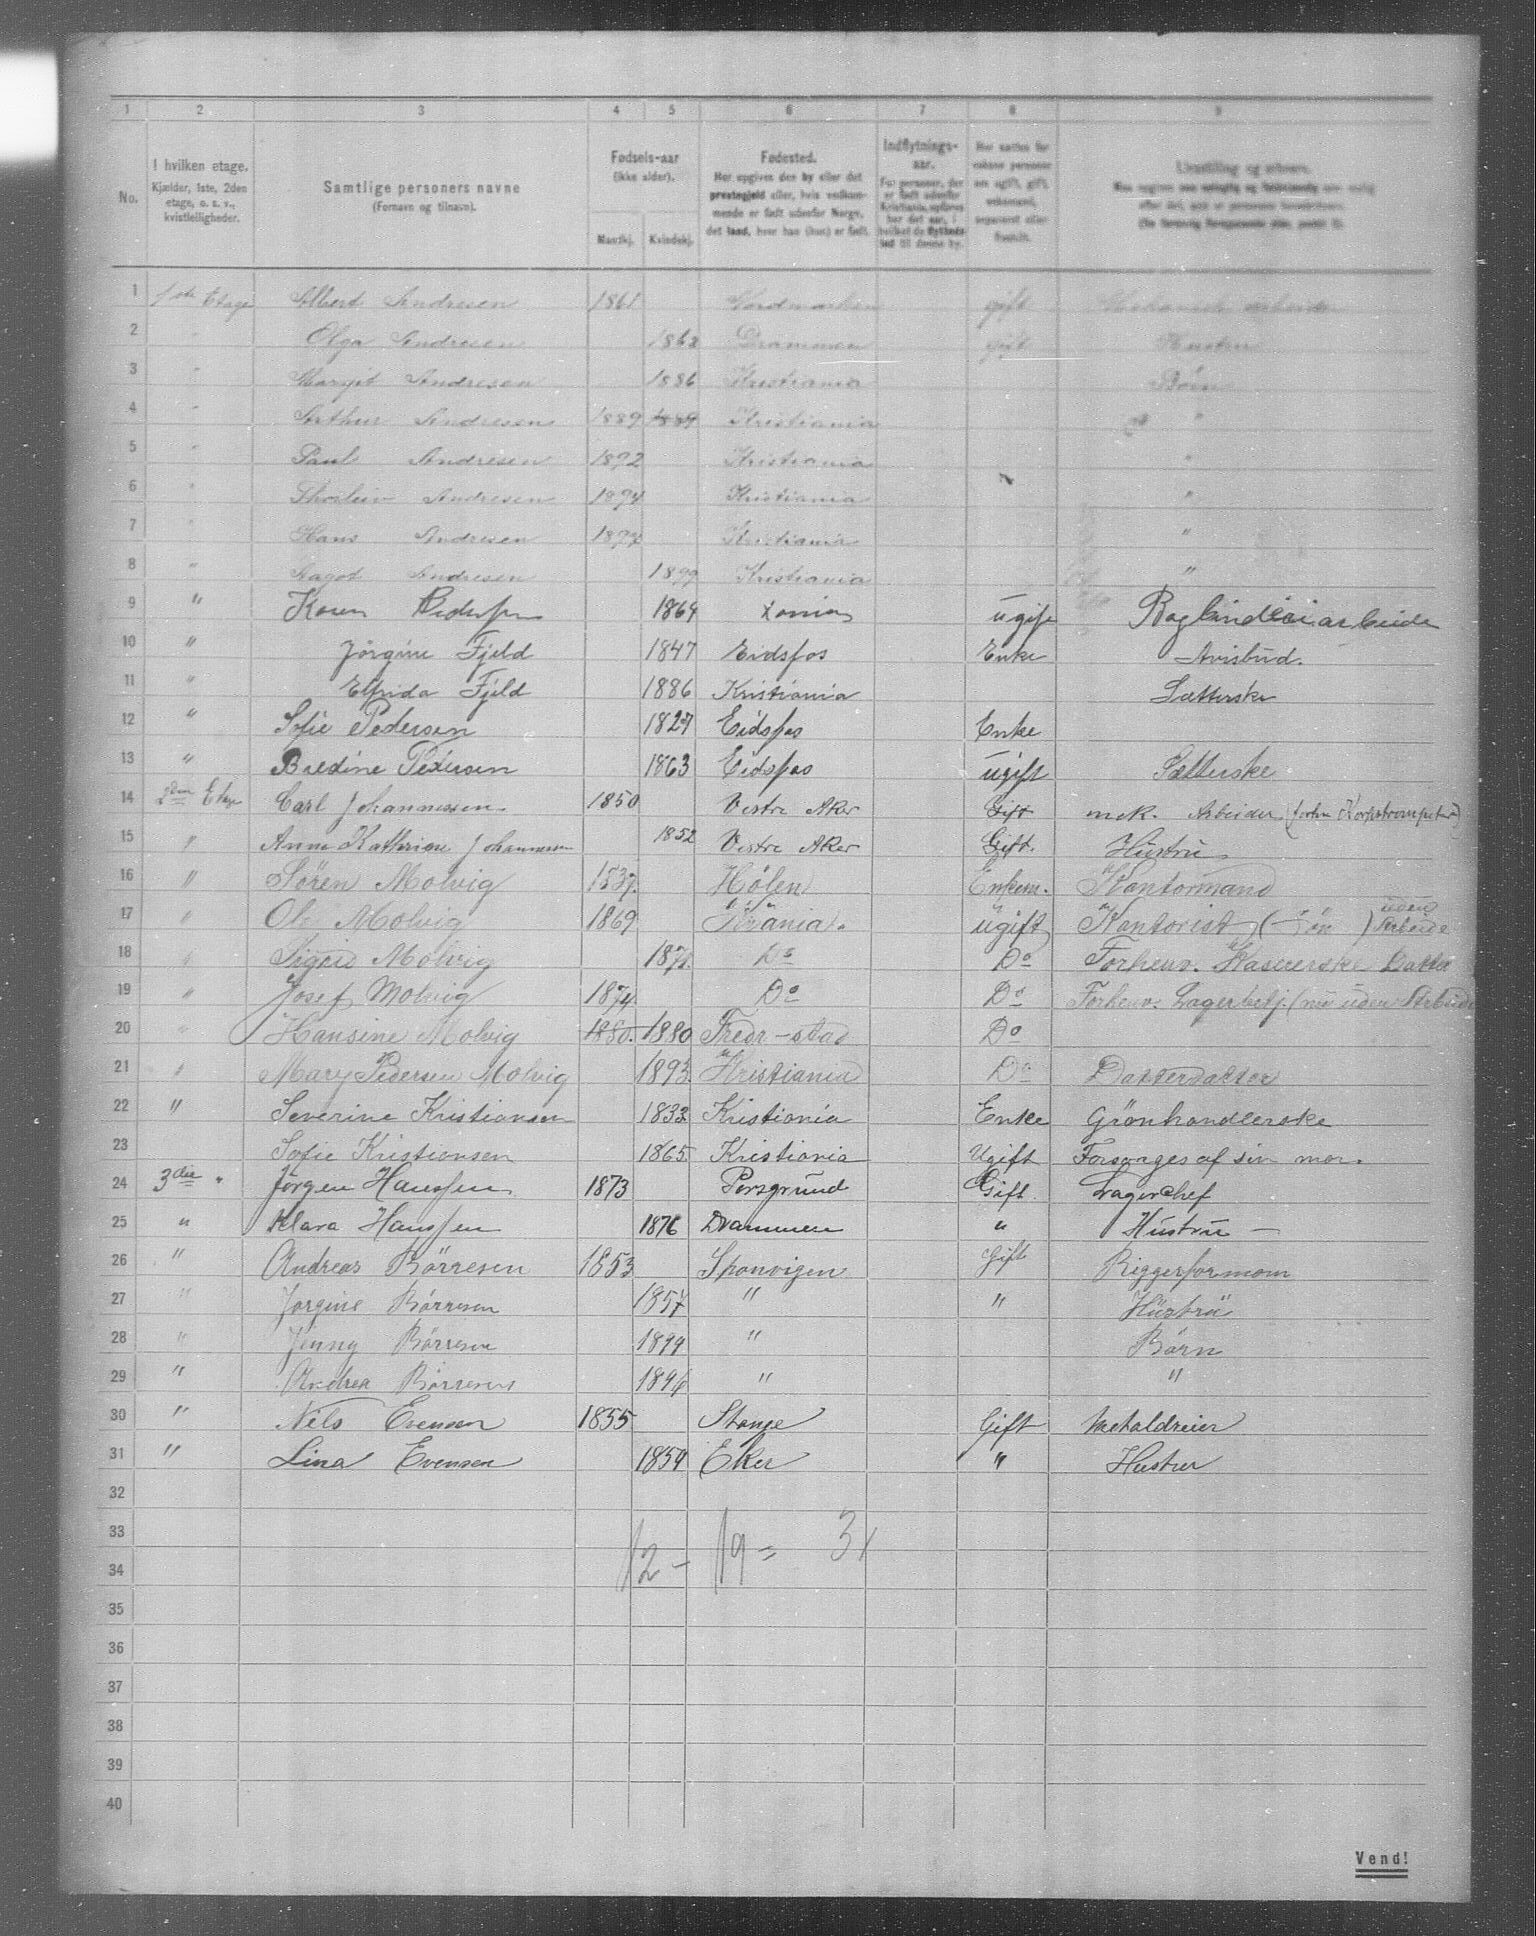 1 2 3 4 5 6 7 8 9
No. I hvilken etage. Kjælder, 1ste, 2den etage, o. s. v., kvistleiligheder. Samtlige personers navne (Fornavn og tilnavn). Fødsels-aar (ikke alder). Mandkj. Kvindekj. Fødested. Her opgives den by eller det præstegjeld eller, hvis vedkommende er født udenfor Norge, det land, hvor han (hun) er født. Indflytningsaar. For personer, der er født udenfor Kristiania, opføres her det aar, i hvilket de flyttede ind til denne by.
1 1ste Etage Albert Andresen 1861 Nordmarken gift Mekanisk arbeider
2 " Olga Andresen 1862 Drammen gift Hustru
3 " Margit Andresen 1886 Kristiania Børn
4 " Arthur Andresen 1889 1889 Kristiania "
5 " Paul Andresen 1892 Kristiania "
6 " Thorleiv Andresen 1894 Kristiania "
7 " Hans Andresen 1897 Kristiania "
8 " Aagot Andresen 1899 Kristiania "
9 " Karen 1864 ugift
10 " Jörgine Fjeld 1847 Eidsfos Enke Avisbud.
11 " Elfrida Fjeld 1886 Kristiania Sætterske
12 " Sofie Pedersen 1827 Eidsfos Enke
13 " Baldine Pedersen 1863 Eidsfos ugift Sætterske
14 2den Etage Carl Johannessen 1850 Vestre Aker Gift mek. Arbeider (forhen Korpstrompeter)
15 " Anna Kathrine Johannessen 1852 Vestre Aker Gift. Hustru
16 " Sören Molvig 1837. Hölen Enkem. Kontormand
17 " Ole Molvig 1869 Kr.ania. ugift Kontorist (Sön) uden Arbeide
18 " Sigrid Molvig 1871. Do Do Forhenv. Kasererske Datter
19 " Josef Molvig 1874. Do Do Forhenv. Lagerbetj. (nu uden Arbeide
20 " Hansine Molvig 1880. 1880 Fredr-stad Do
21 " Mary Pedersen Molvig 1893. Kristiania Do Datterdatter
22 " Severine Kristiansen 1833. Kristiania Enke Grönhandlerske
23 Sofie Kristiansen 1865. Kristiania Ugift Forsörges af sin mor.
24 3die " Jörgen Hanssen 1873 Porsgrund Gift Lagerchef
25 " Klara Hanssen 1876 Drammen " Hustru —
26 " Andreas Börresen 1853 Spanvigen Gift Riggerformom
27 " Jorgine Börresen 1857 " " Hustru
28 " Jenny Börresen 1894 " Børn
29 " Andrea Börresen 1896 " "
30 " Nils Evensen 1855 Stange Gift Metaldreier
31 " Lina Evensen 1859 Eker " Hustru
32
33
12 - 19 = 31
34
35
36
37
38
39
40
Vend!